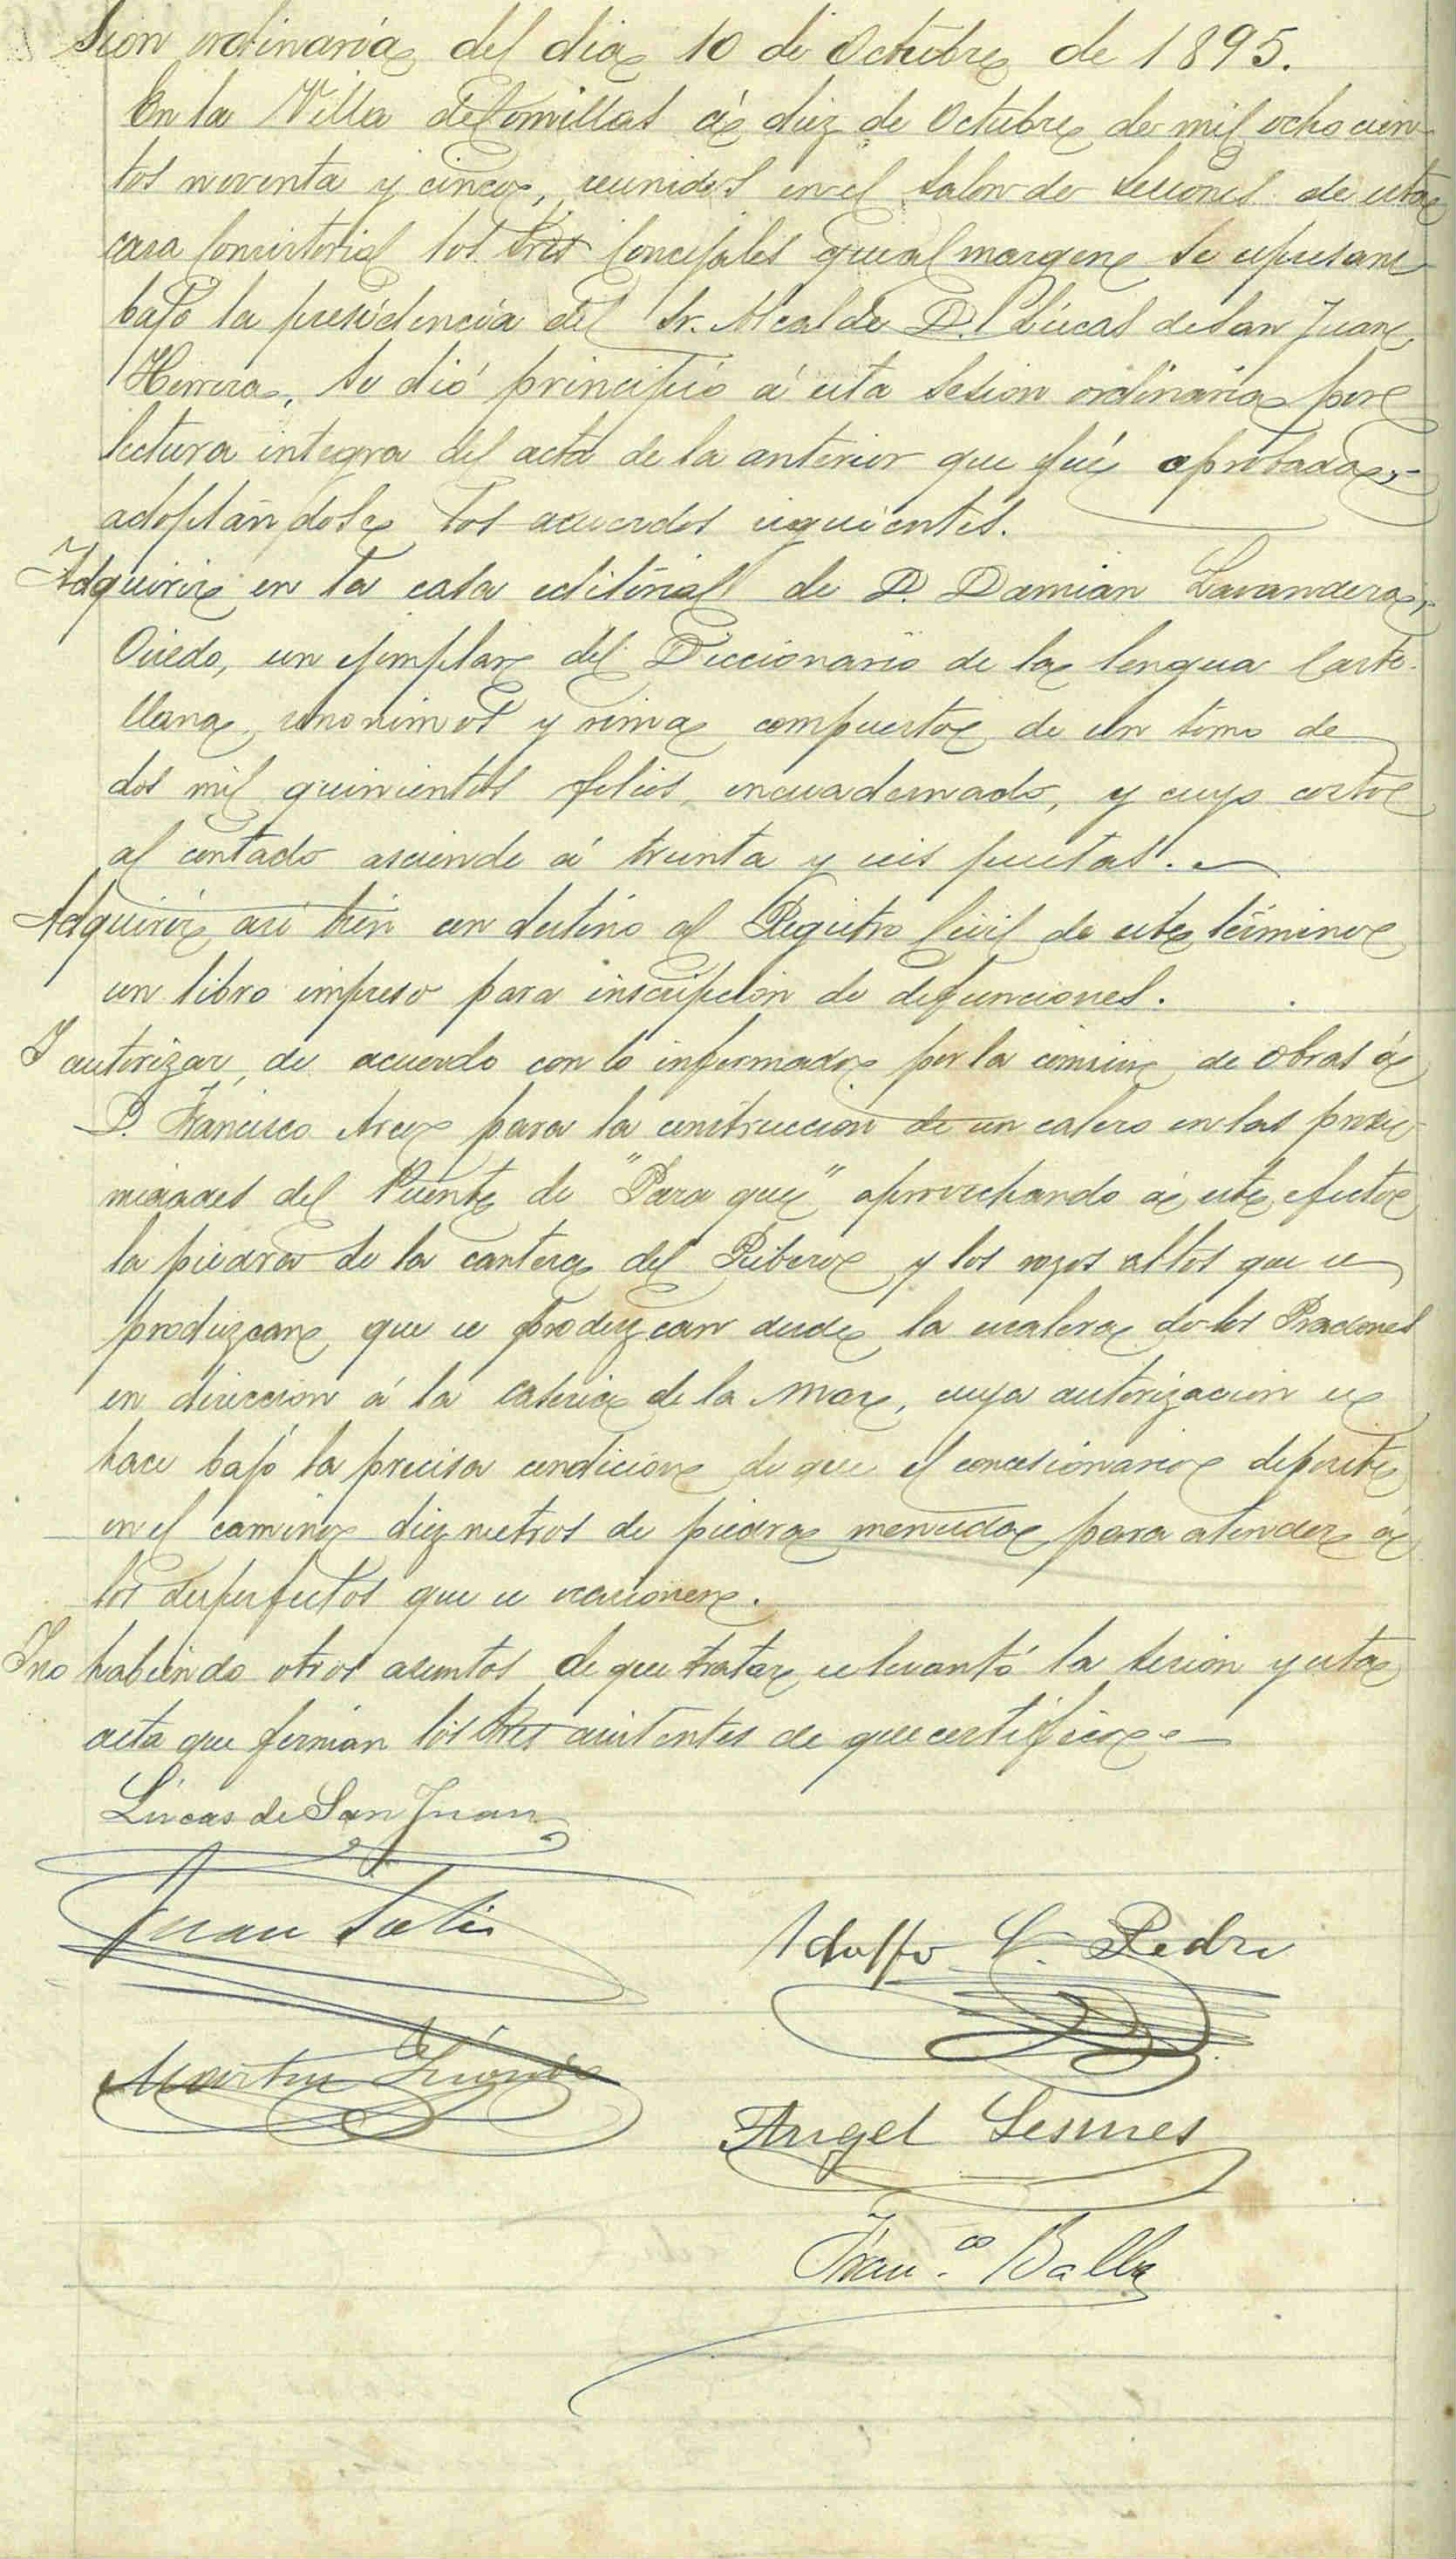 sion ordinaria del dia 10 de Octubre de 1895.
En la Villa de Comillas á diez de Octubre de mil ochocien-
tos noventa y cinco, reunidos en el salon de sesiones de esta
casa Consistorial los tres Concejales que al margen se espresan
bajo la presidencia del Sr. Alcalde D. Lucas de San Juan
Herrera, se dió principio á esta sesion ordinaria por
lectura integra del acta de la anterior que fué aprobada,-
adoptándose los acuerdos siguientes.
Adquirir en la casa editorial de D. Damian Lavandera,
Oviedo, un ejemplar del Diccionario de la lengua Caste-
llana, sinonimos y rima compuesto de un tomo de
dos mil quinientos folios, encuadernado, y cuyo costo
al contado asciende á treinta y seis pesetas.
Adquirir asi bien con destino al Registro Civil de este término
un libro impreso para inscripción de defunciones.
Y autorizar, de acuerdo con lo informado por la comision de obras á
D. Francisco Arce para la construccion de un calero en las proxi-
midades del Puente de "Para que" aprovechando á este efecto
la piedra de la cantera del Ribero y los rozos altos que se
produzcan que se produzcan desde la escalera de los Pradones
en direccion á la caseria de la Mar, cuya autorizacion se
hace bajo la precisa condicion de que el concesionario deposite
en el camino diez metros de piedra menuda para atender á
los desperfectos que se ocasionen.
Y no habiendo otros asuntos de que tratar se levantó la sesion y esta
acta que firman los tres asistentes de que certifico.
Lucas de San Juan
Juan Solis
Adolfo C. Pedre
Martin
Angel Lesmes
Fran.co Balba